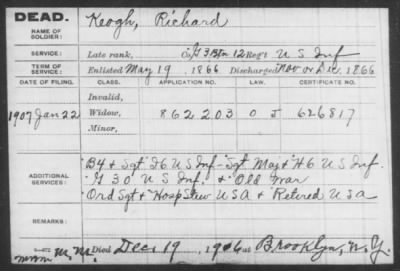 DEAD.
NAME OF SOLDIER: Keogh, Richard
SERVICE: Late rank, Co. G 3 Btn 12 Reg't U S Inf
TERM OF SERVICE: Enlisted May 19, 1866 Discharged Nov or Dec, 1866
DATE OF FILING. CLASS. APPLICATION NO. LAW. CERTIFICATE NO.
Invalid,
1907 Jan 22 Widow, 862203 O 626817
Minor,
ADDITIONAL SERVICES: " & Sgt" U S Inf - Sgt Maj & H 6 U S Inf.
G 30 U S Inf. & Old War
Ord Sgt & Hosp Stew U S A & Retired U S A
REMARKS:
M.M. Died Dec 19, 1906 at Brooklyn, N.Y.